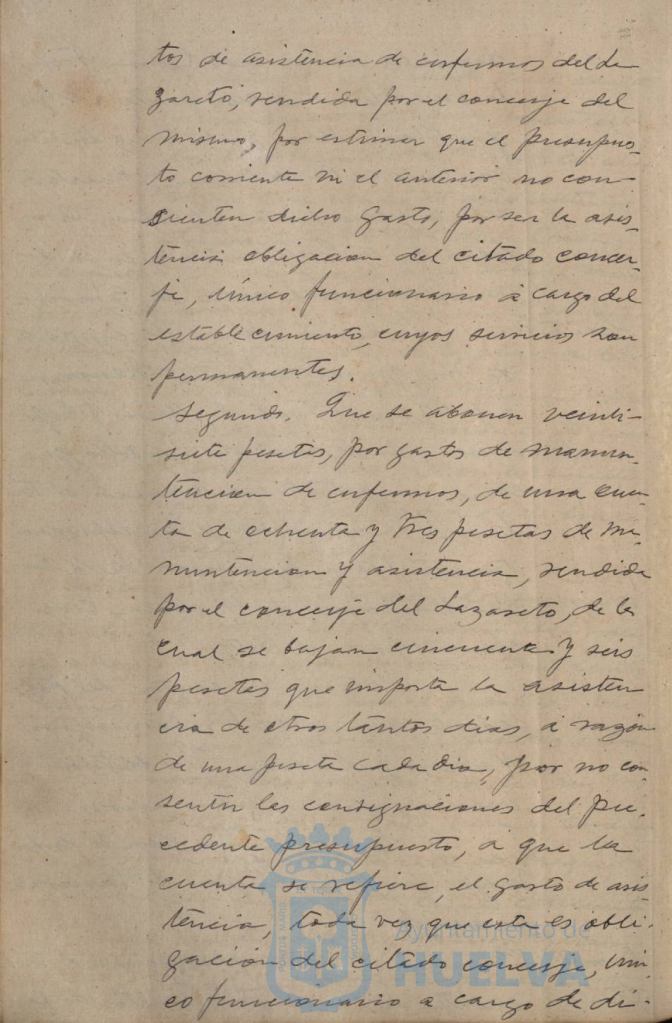 tos de asistencia de enfermos del La
zareto, rendida por el conserje del
mismo, por estimar que el presupues-
to corriente ni el anterior no con-
sienten dicho gasto, por ser la asis-
tencia obligacion del citado conser-
je, único funcionario á cargo del
establecimiento, cuyos servicios son
permanentes.
Segundo. Que se abonen veinti-
siete pesetas, por gastos de manu-
tencion de enfermos, de una cuen-
ta de ochenta y tres pesetas de ma-
nuntencion y asistencia, rendida
por el conserje del Lazareto, de la
cual se bajan cincuenta y seis
pesetas que importa la asisten
cia de otros tantos dias, á razón
de una peseta cada dia, por no con
sentir las consignaciones del pre-
cedente presupuesto, á que la
cuenta se refiere, el gasto de asis
tencia, toda vez que esta es obli-
gación del citado conserje, úni
co funcionario a cargo de di-
Ayuntamiento de
HUELVA